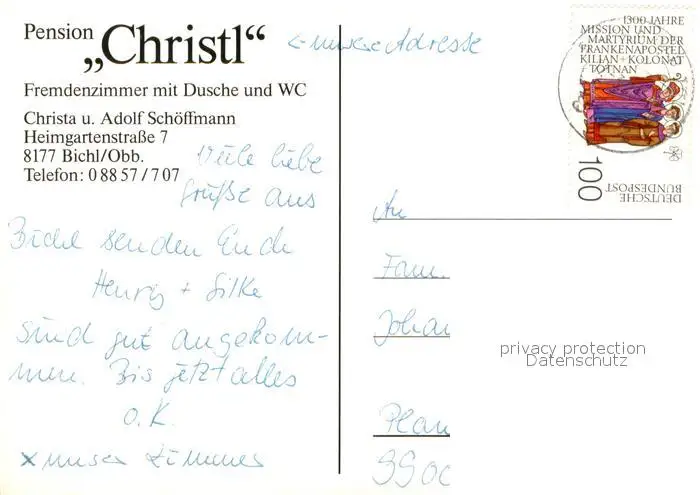 Pension „Christl“
← unsere Adresse
Fremdenzimmer mit Dusche und WC
Christa u. Adolf Schöffmann
Heimgartenstraße 7
8177 Bichl/Obb.
Telefon: 0 88 57 / 7 07
Viele liebe
Grüße aus
Bichl senden Euch
Henry + Silke
Sind gut angekom-
men. Bis jetzt alles
o.K.
x unser Zimmer
1300 JAHRE
MISSION UND
MARTYRIUM DER
FRANKENAPOSTEL
KILIAN + KOLONAT
+ TOTNAN
100
DEUTSCHE
BUNDESPOST
An
Fam.
Johan
privacy protection
Datenschutz
Plau
9900